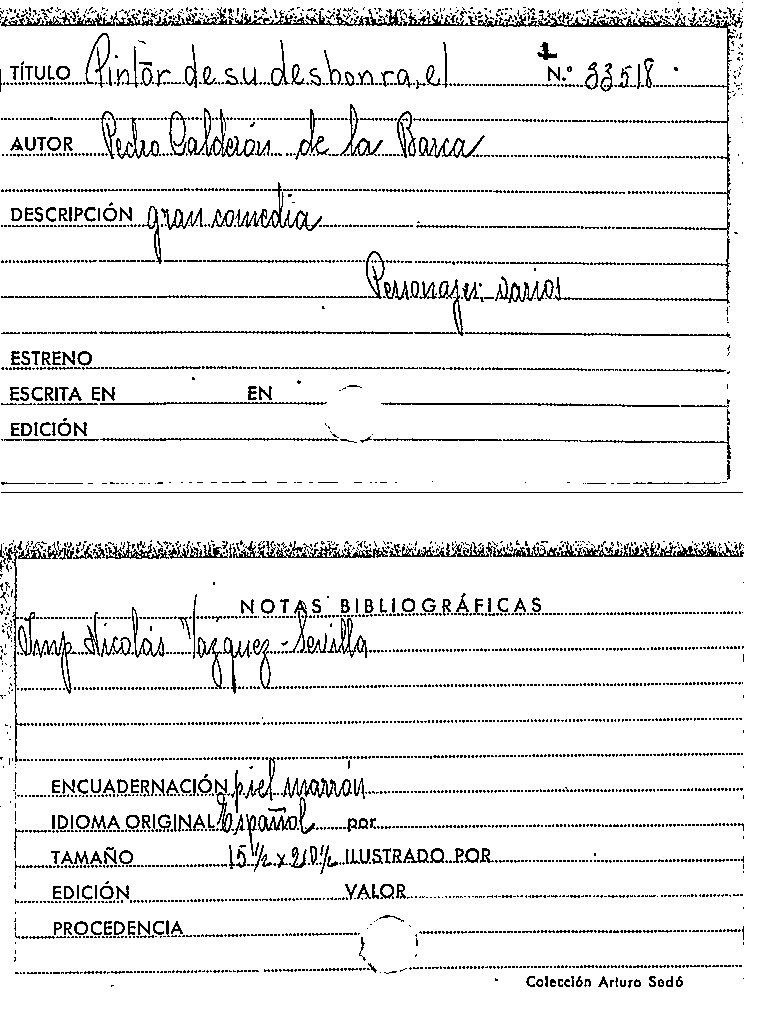 1
TÍTULO Pintor de su deshonra, el N.º 33518
AUTOR Pedro Calderón de la Barca
DESCRIPCIÓN gran comedia
Personajes: varios
ESTRENO
ESCRITA EN EN
EDICIÓN
NOTAS BIBLIOGRÁFICAS
Imp Nicolás Vázquez - Sevilla
ENCUADERNACIÓN piel marrón
IDIOMA ORIGINAL Español por
TAMAÑO ILUSTRADO POR
EDICIÓN VALOR
PROCEDENCIA
Colección Arturo Sedó